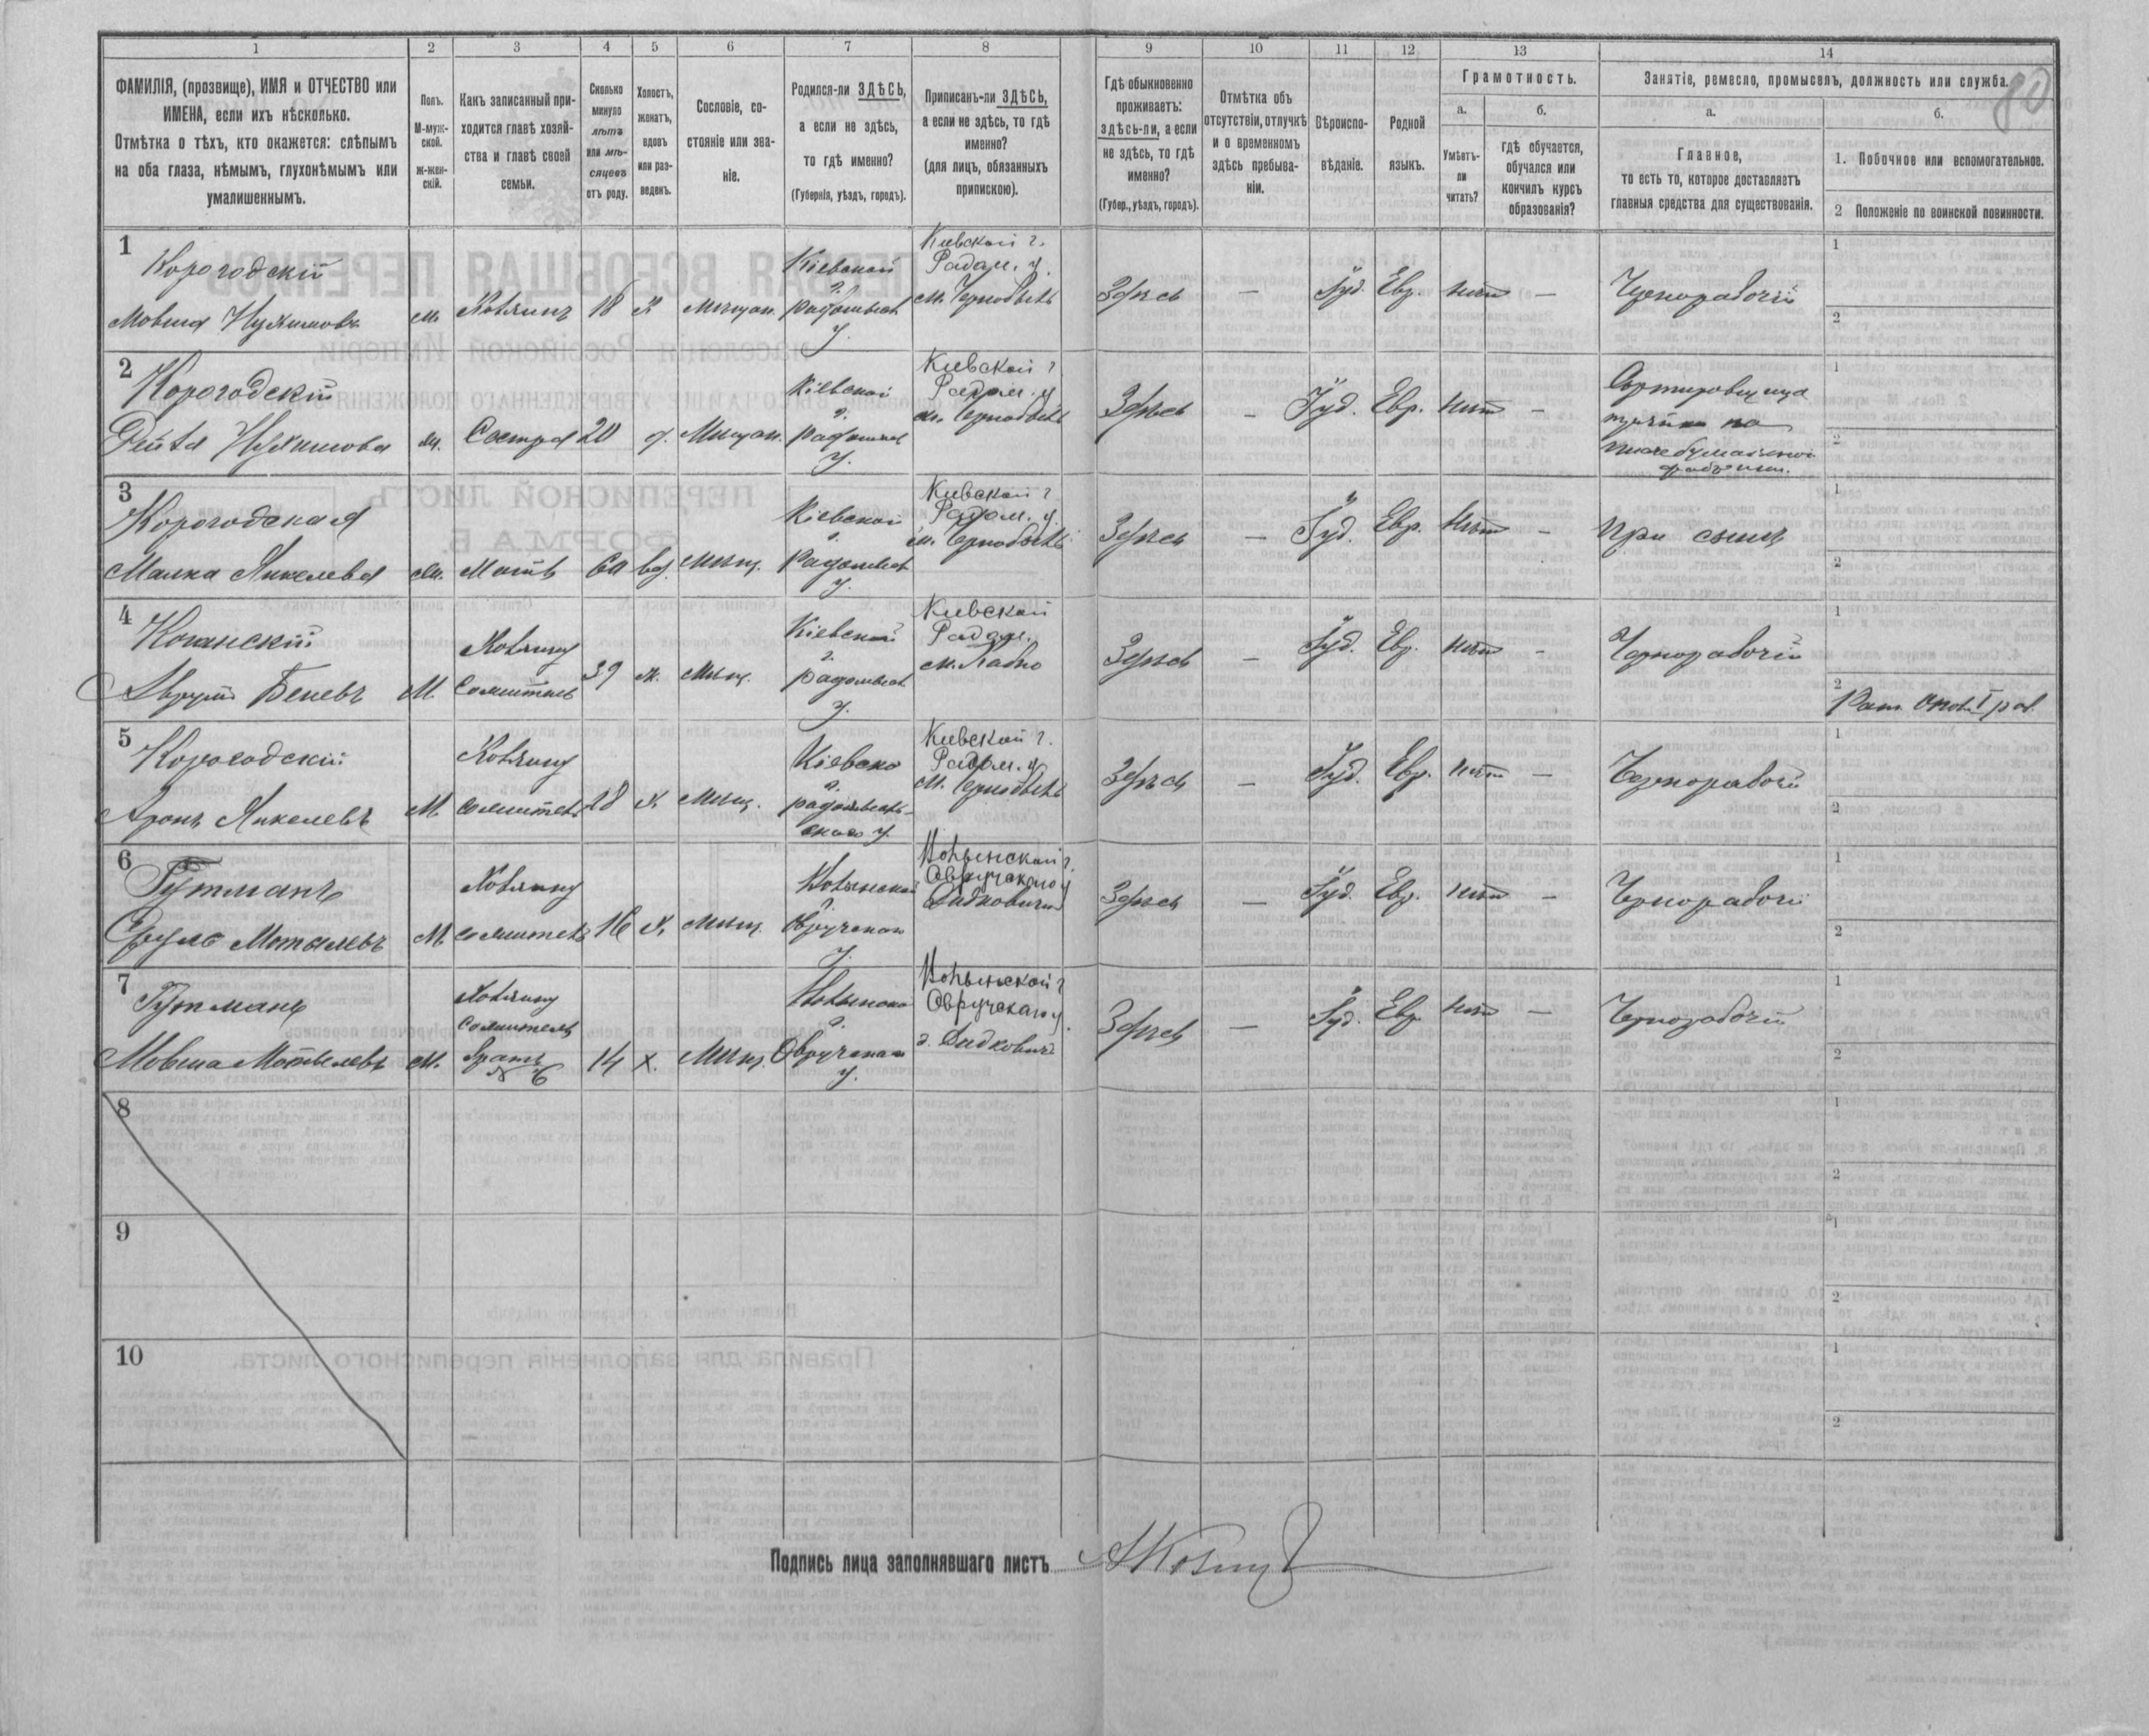 1 2 3 4 5 6 7 8 9 10 11 12 13 14
80
ФАМИЛІЯ, (прозвище), ИМЯ и ОТЧЕСТВО или
ИМЕНА, если ихъ нѣсколько.
Отмѣтка о тѣхъ, кто окажется: слѣпымъ
на оба глаза, нѣмымъ, глухонѣмымъ или
умалишеннымъ.
Полъ.
М-муж-
ской.
Ж-жен-
скій.
Какъ записанный при-
ходится главѣ хозяй-
ства и главѣ своей
семьи.
Сколько
минуло
лѣтъ
или мѣ-
сяцевъ
отъ роду.
Холостъ,
женатъ,
вдовъ
или раз-
веденъ.
Сословіе, со-
стояніе или зва-
ніе.
Родился-ли ЗДѢСЬ,
а если не здѣсь,
то гдѣ именно?
(Губернія, уѣздъ, городъ).
Приписанъ-ли ЗДѢСЬ,
а если не здѣсь, то гдѣ
именно?
(для лицъ, обязанныхъ
припискою).
Гдѣ обыкновенно
проживаетъ:
здѣсь-ли, а если
не здѣсь, то гдѣ
именно?
(Губер., уѣздъ, городъ).
Отмѣтка объ
отсутствіи, отлучкѣ
и о временномъ
здѣсь пребыва-
ніи.
Вѣроиспо-
вѣданіе.
Родной
языкъ.
Грамотность.
а.
Умѣетъ-
ли
читать?
б.
гдѣ обучается,
обучался или
кончилъ курсъ
образованія?
Занятіе, ремесло, промыселъ, должность или служба.
а.
Главное,
то есть то, которое доставляетъ
главныя средства для существованія.
б.
1. Побочное или вспомогательное.
2 Положеніе по воинской повинности.
1
Корогодскій
Мовша Нухимовъ
м.
Хозяинъ
18
х
мѣщан.
Кіевской
г.
Радомысл
у.
Кіевской г.
Радом. у.
м. Чернобыль
Здѣсь
—
Іуд.
Евр.
нѣтъ
—
Чернорабочій
1
2
2
Корогодскій
Нухимова
Сестра
20
д.
Мѣщан.
Кіевской
г.
Радомысл
у.
Кіевской г
Радом. у
м. Чернобыль
Здѣсь
—
Іуд.
Евр.
нѣтъ
—
Сортировщица
на
фабрики.
1
2
3
Корогодская
Малка Янкелева
Мать
60
вд.
мѣщ.
Кіевской
г.
Радомысл
у.
Кіевской г
Радом. у.
м. Чернобыль
Здѣсь
—
Іуд.
Евр.
нѣтъ
—
При сынѣ
1
2
4
Аврумъ
М.
Хозяину
сожитель
39
мѣщ.
Кіевской
г.
Радомысл
у.
Кіевской
Радом.
м.
Здѣсь
—
Іуд.
Евр.
нѣтъ
—
Чернорабочій
1
2
Рат. I раз.
5
Корогодскій
Аронъ Янкелевъ
М.
Хозяину
сожитель
28
х.
мѣщ.
Кіевско
г.
радомысль-
скаго у.
Кіевской г.
Радом. у
м. Чернобыль
Здѣсь
—
Іуд.
Евр.
нѣтъ
—
Чернорабочій
1
2
6
Гутманъ
Сруль Мотылевъ
М.
Хозяину
сожитель
16
х.
мѣщ.
Волынской
г.
Овручскаго
у.
Волынской г.
Овручскаго у
Дидковичи
Здѣсь
—
Іуд.
Евр.
нѣтъ
—
Чернорабочій
1
2
7
Гутманъ
Мовша Мотылевъ
М.
Хозяину
сожитель
братъ
№ 6
14
х.
Мѣщ.
Волынско
г.
Овручскаго
у.
Волынской г
Овручскаго у.
д. Дидковичи
Здѣсь
—
Іуд.
Евр.
нѣтъ
—
Чернорабочій
1
2
8
1
2
9
1
2
10
1
2
Подпись лица заполнявшаго листъ